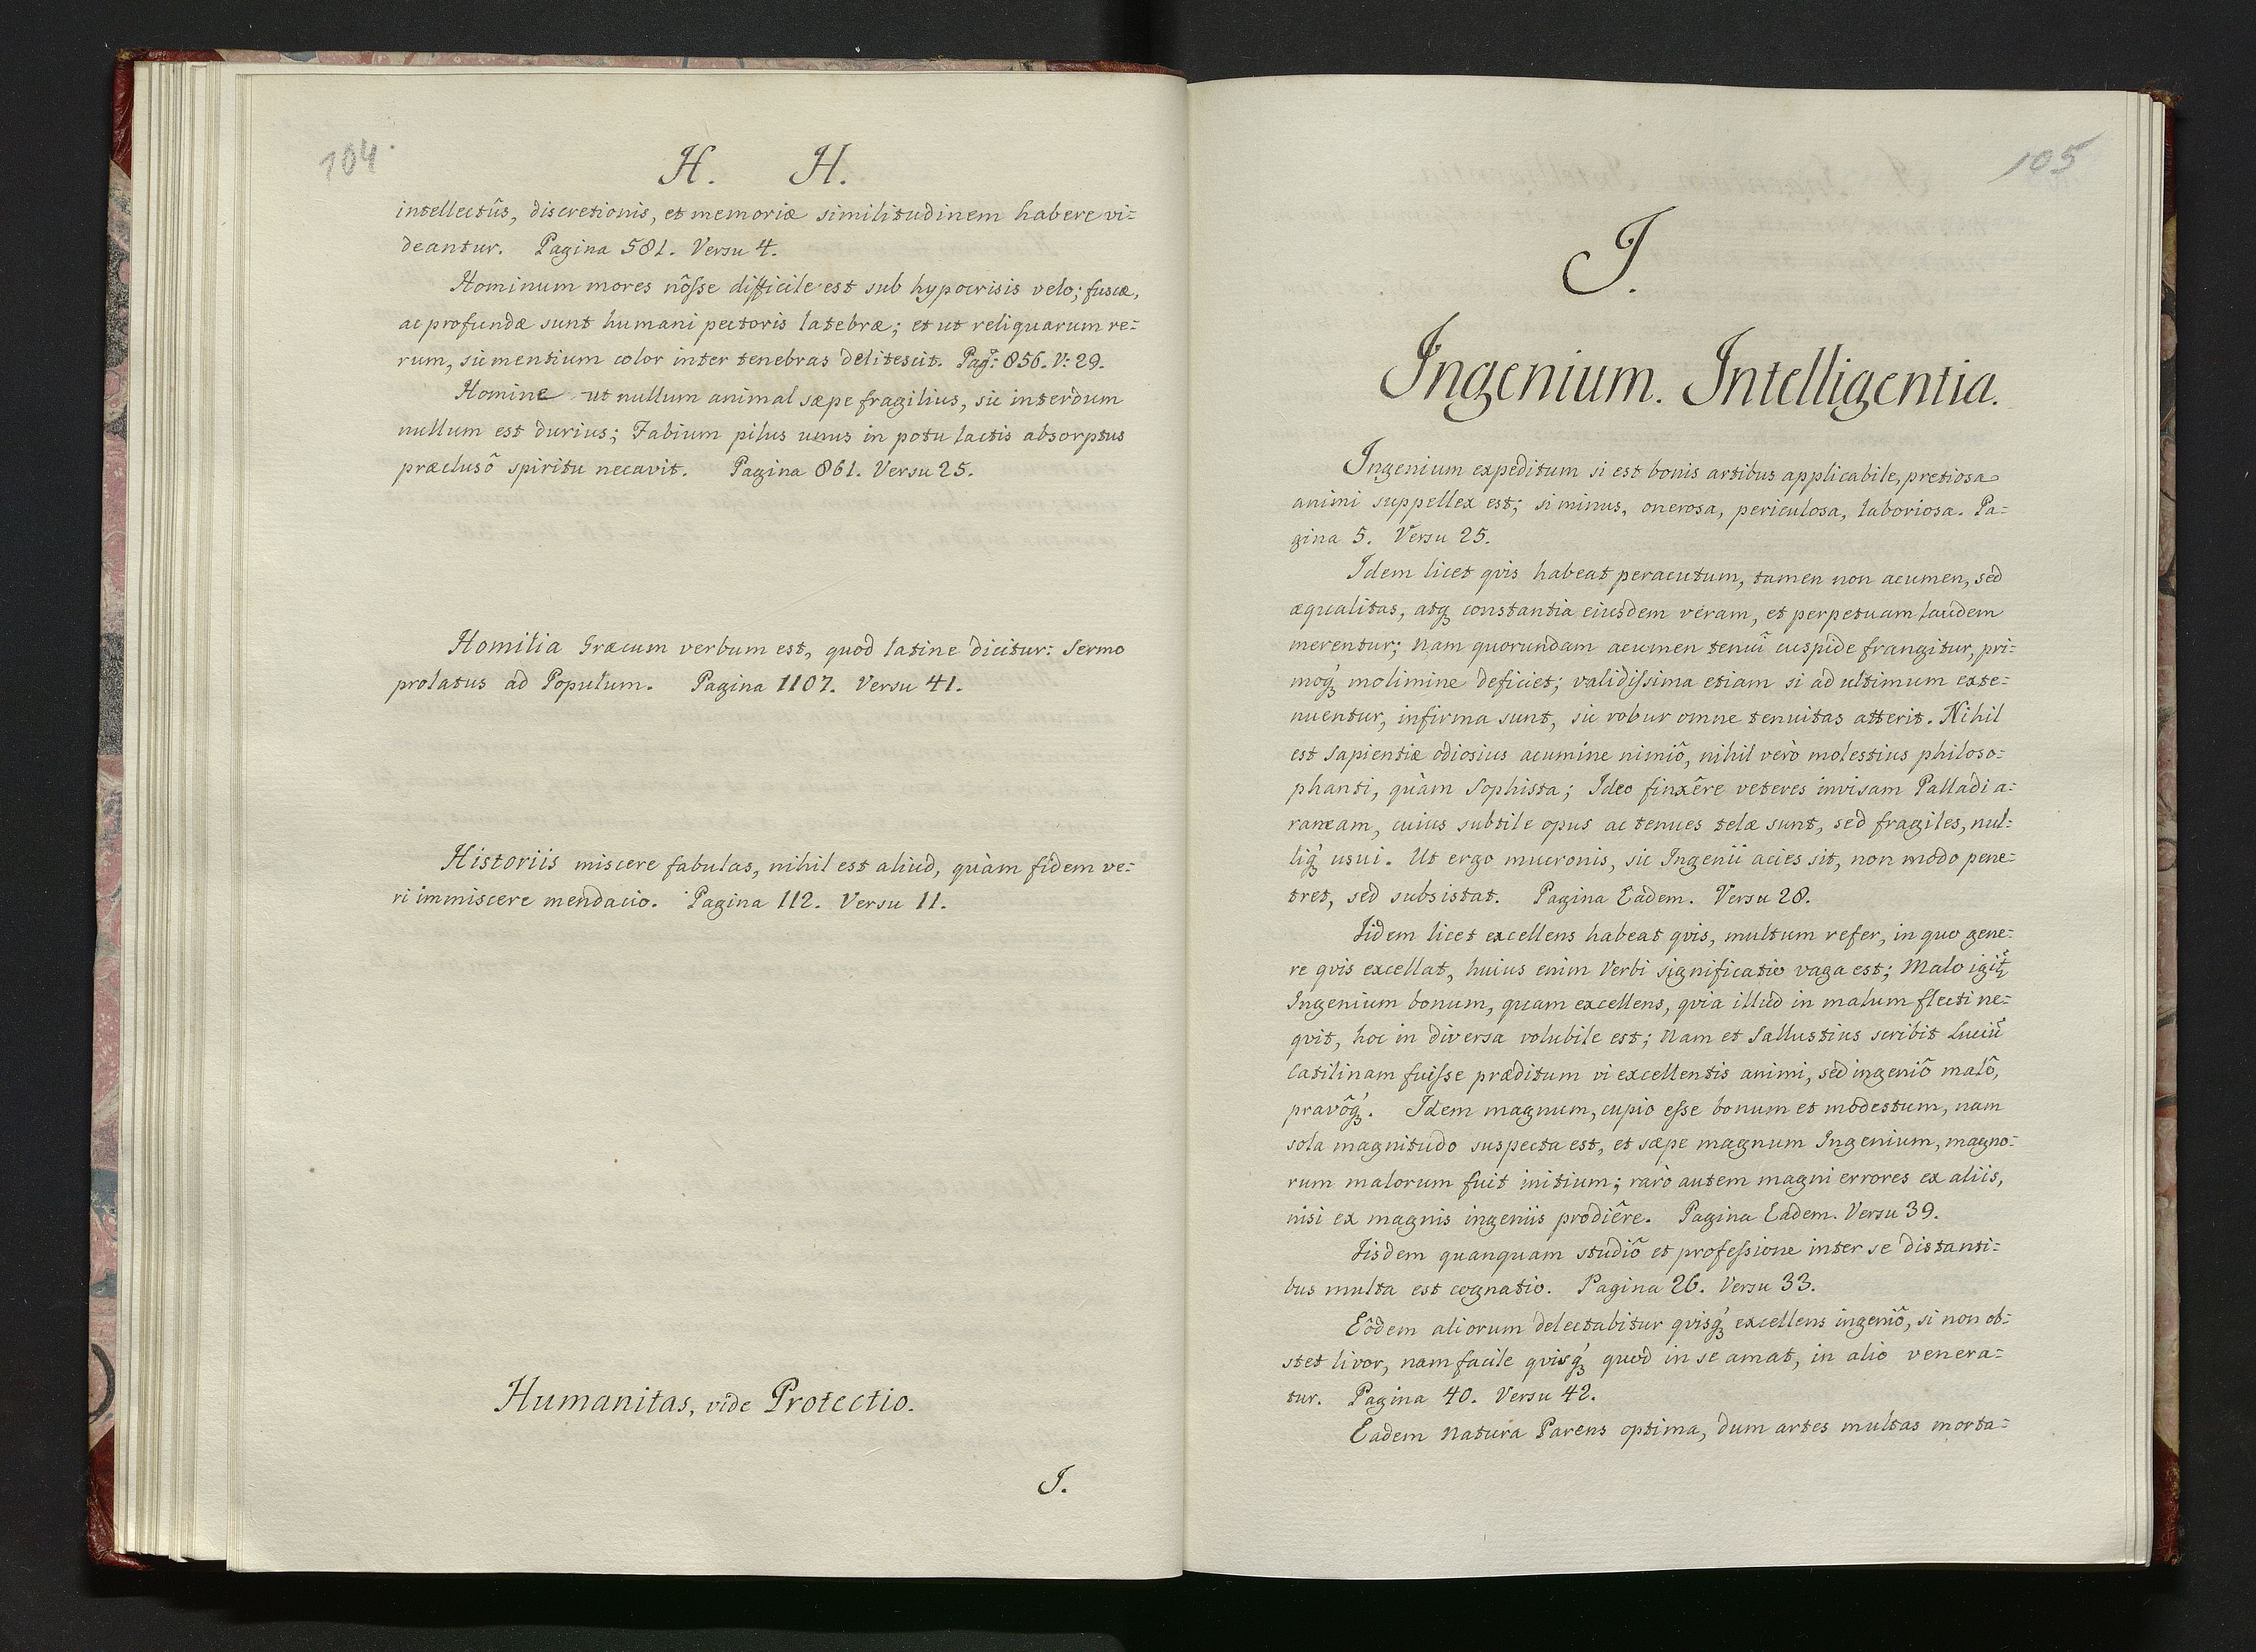 104
H. H.
intellectûs, discretionis, et memoriæ similitudinem habere vi=
deantur. Pagina 581. Versu 4.
Hominum mores nôsse difficile est sub hypocrisis velo; fuscæ,
ac profundæ sunt humani pectoris latebræ; et ut reliquarum re=
rum, sic mentium color inter tenebras delitescit. Pag: 856. V: 29.
Homine ut nullum animal sæpe fragilius, sic interdum
nullum est durius; Fabium pilus unus in potu lactis absorptus
præclusô spiritu necavit. Pagina 861. Versu 25.
Homilia Græcum verbum est, quod latine dicitur: Sermo
prolatus ad Populum. Pagina 1107. Versu 41.
Historiis miscere fabulas, nihil est aliud, quàm fidem ve=
ri immiscere mendacio. Pagina 112. Versu 11.
Humanitas, vide Protectio.
I.
105
I.
Ingenium. Intelligentia.
Ingenium expeditum si est bonis artibus applicabile, pretiosa
animi suppellex est; si minus, onerosa, periculosa, laboriosa. Pa=
gina 5. Versu 25.
Idem licet qvis habeat peracutum, tamen non acumen, sed
æqualitas, atq; constantia eiusdem veram, et perpetuam laudem
merentur; Nam quorundam acumen tenuî cuspide frangitur, pri=
moq; molimine deficiet; validissima etiam si ad ultimum exte=
nuentur, infirma sunt, sic robur omne tenuitas atterit. Nihil
est Sapientiæ odiosius acumine nimiô, nihil verò molestius philoso=
phanti, quàm Sophista; Ideo finxêre veteres invisam Palladi a=
raneam, cuius subtile opus ac tenues telæ sunt, sed fragiles, nul=
liq; usui. Ut ergo mucronis, sic Ingenii acies sit, non modo pene=
tret, sed subsistat. Pagina Eadem. Versu 28.
Iidem licet excellens habeat qvis, multum refer, in quo gene=
re qvis excellat, huius enim Verbi significatio vaga est; Malo igit̃
Ingenium bonum, quam excellens, qvia illud in malum flecti ne=
qvit, hoc in diversa volubile est; Nam et Sallustius scribit Luciũ
Catilinam fuisse præditum vi excellentis animi, sed ingeniô malô,
pravôq;. Idem magnum, cupio esse bonum et modestum, nam
sola magnitudo suspecta est, et sæpe magnum Ingenium, magno=
rum malorum fuit initium; rarò autem magni errores ex aliis,
nisi ex magnis ingeniis prodiêre. Pagina Eadem. Versu 39.
Iisdem quanquam studiô et professione inter se distanti=
bus multa est cognatio. Pagina 26. Versu 33.
Eôdem aliorum delectabitur qvisq; excellens ingeniô, si non ob=
stet livor, nam facile qvisq; quod in se amat, in alio venera=
tur. Pagina 40. Versu 42.
Eadem Natura Parens optima, dum artes multas morta=